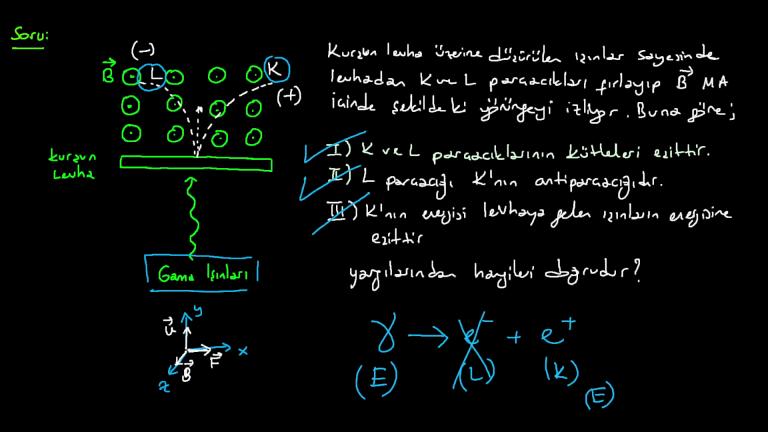 Soru:
(-)
B L K
(+)
Kurşun Levha
Gama Işınları
y
V
x
F
B
z
Kurşun levha üzerine düşürülen ışınlar sayesinde
levhadan K ve L parçacıkları fırlayıp B MA
içinde şekildeki yörüngeyi izliyor. Buna göre;
I) K ve L parçacıklarının kütleleri eşittir.
II) L parçacığı K'nın antiparçacığıdır.
III) K'nın enerjisi levhaya gelen ışınların enerjisine
eşittir
yargılarından hangileri doğrudur?
γ → e⁻ + e⁺
(E) (L) (K)
(E)